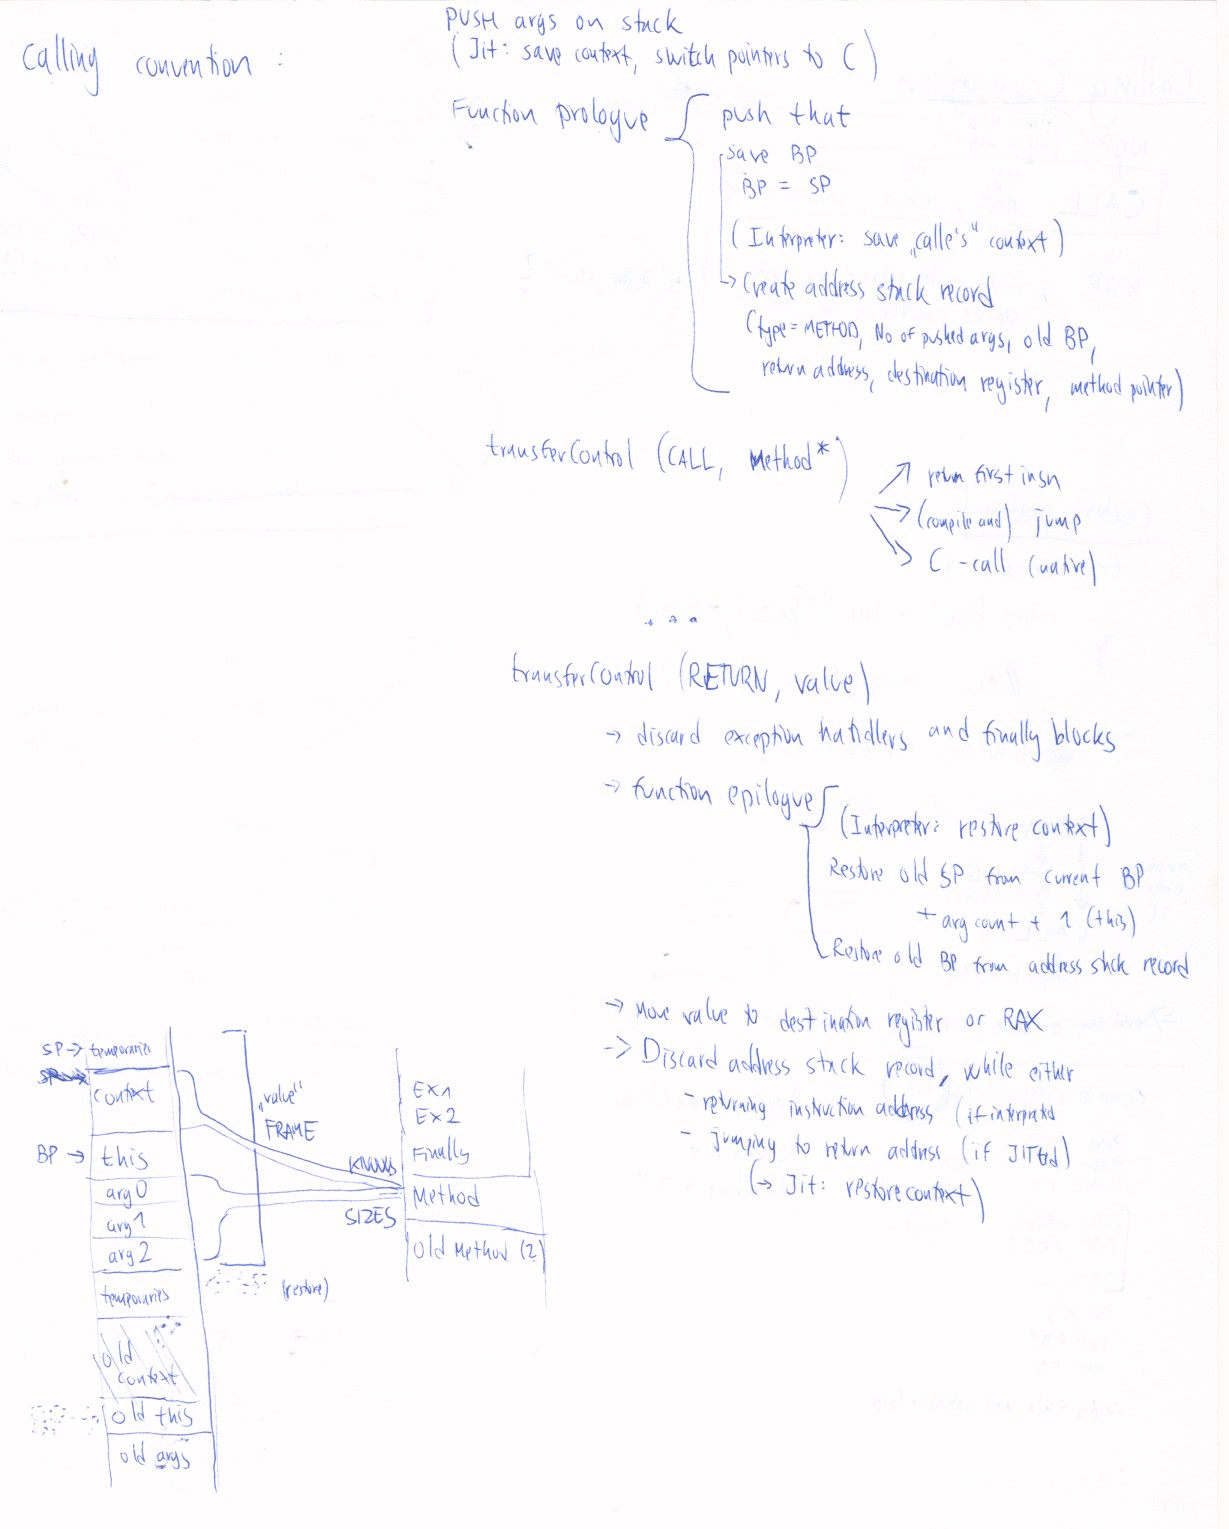 Calling convention :
PUSH args on stack
(Jit: save context, switch pointers to C)
Function prologue
push that
save BP
BP = SP
(Interpreter: save „calle's" context)
→ Create address stack record
(type = METHOD, No of pushed args, old BP,
return address, destination register, method pointer)
transferControl (CALL, Method*)
↗ return first insn
→ (compile and) jump
↘ C-call (native)
...
transferControl (RETURN, value)
→ discard exception handlers and finally blocks
→ function epilogue
(Interpreter: restore context)
Restore old SP from current BP
+ arg count + 1 (this)
Restore old BP from address stack record
→ Move value to destination register or RAX
→ Discard address stack record, while either
- returning instruction address (if interpreted
- jumping to return address (if JITted)
(→ Jit: restore context)
SP → temporaries
context
BP → this
arg0
arg1
arg2
temporaries
old
context
old this
old args
„value"
FRAME
(restore)
KNOWS
SIZES
Ex1
Ex2
Finally
Method
Old Method (2)